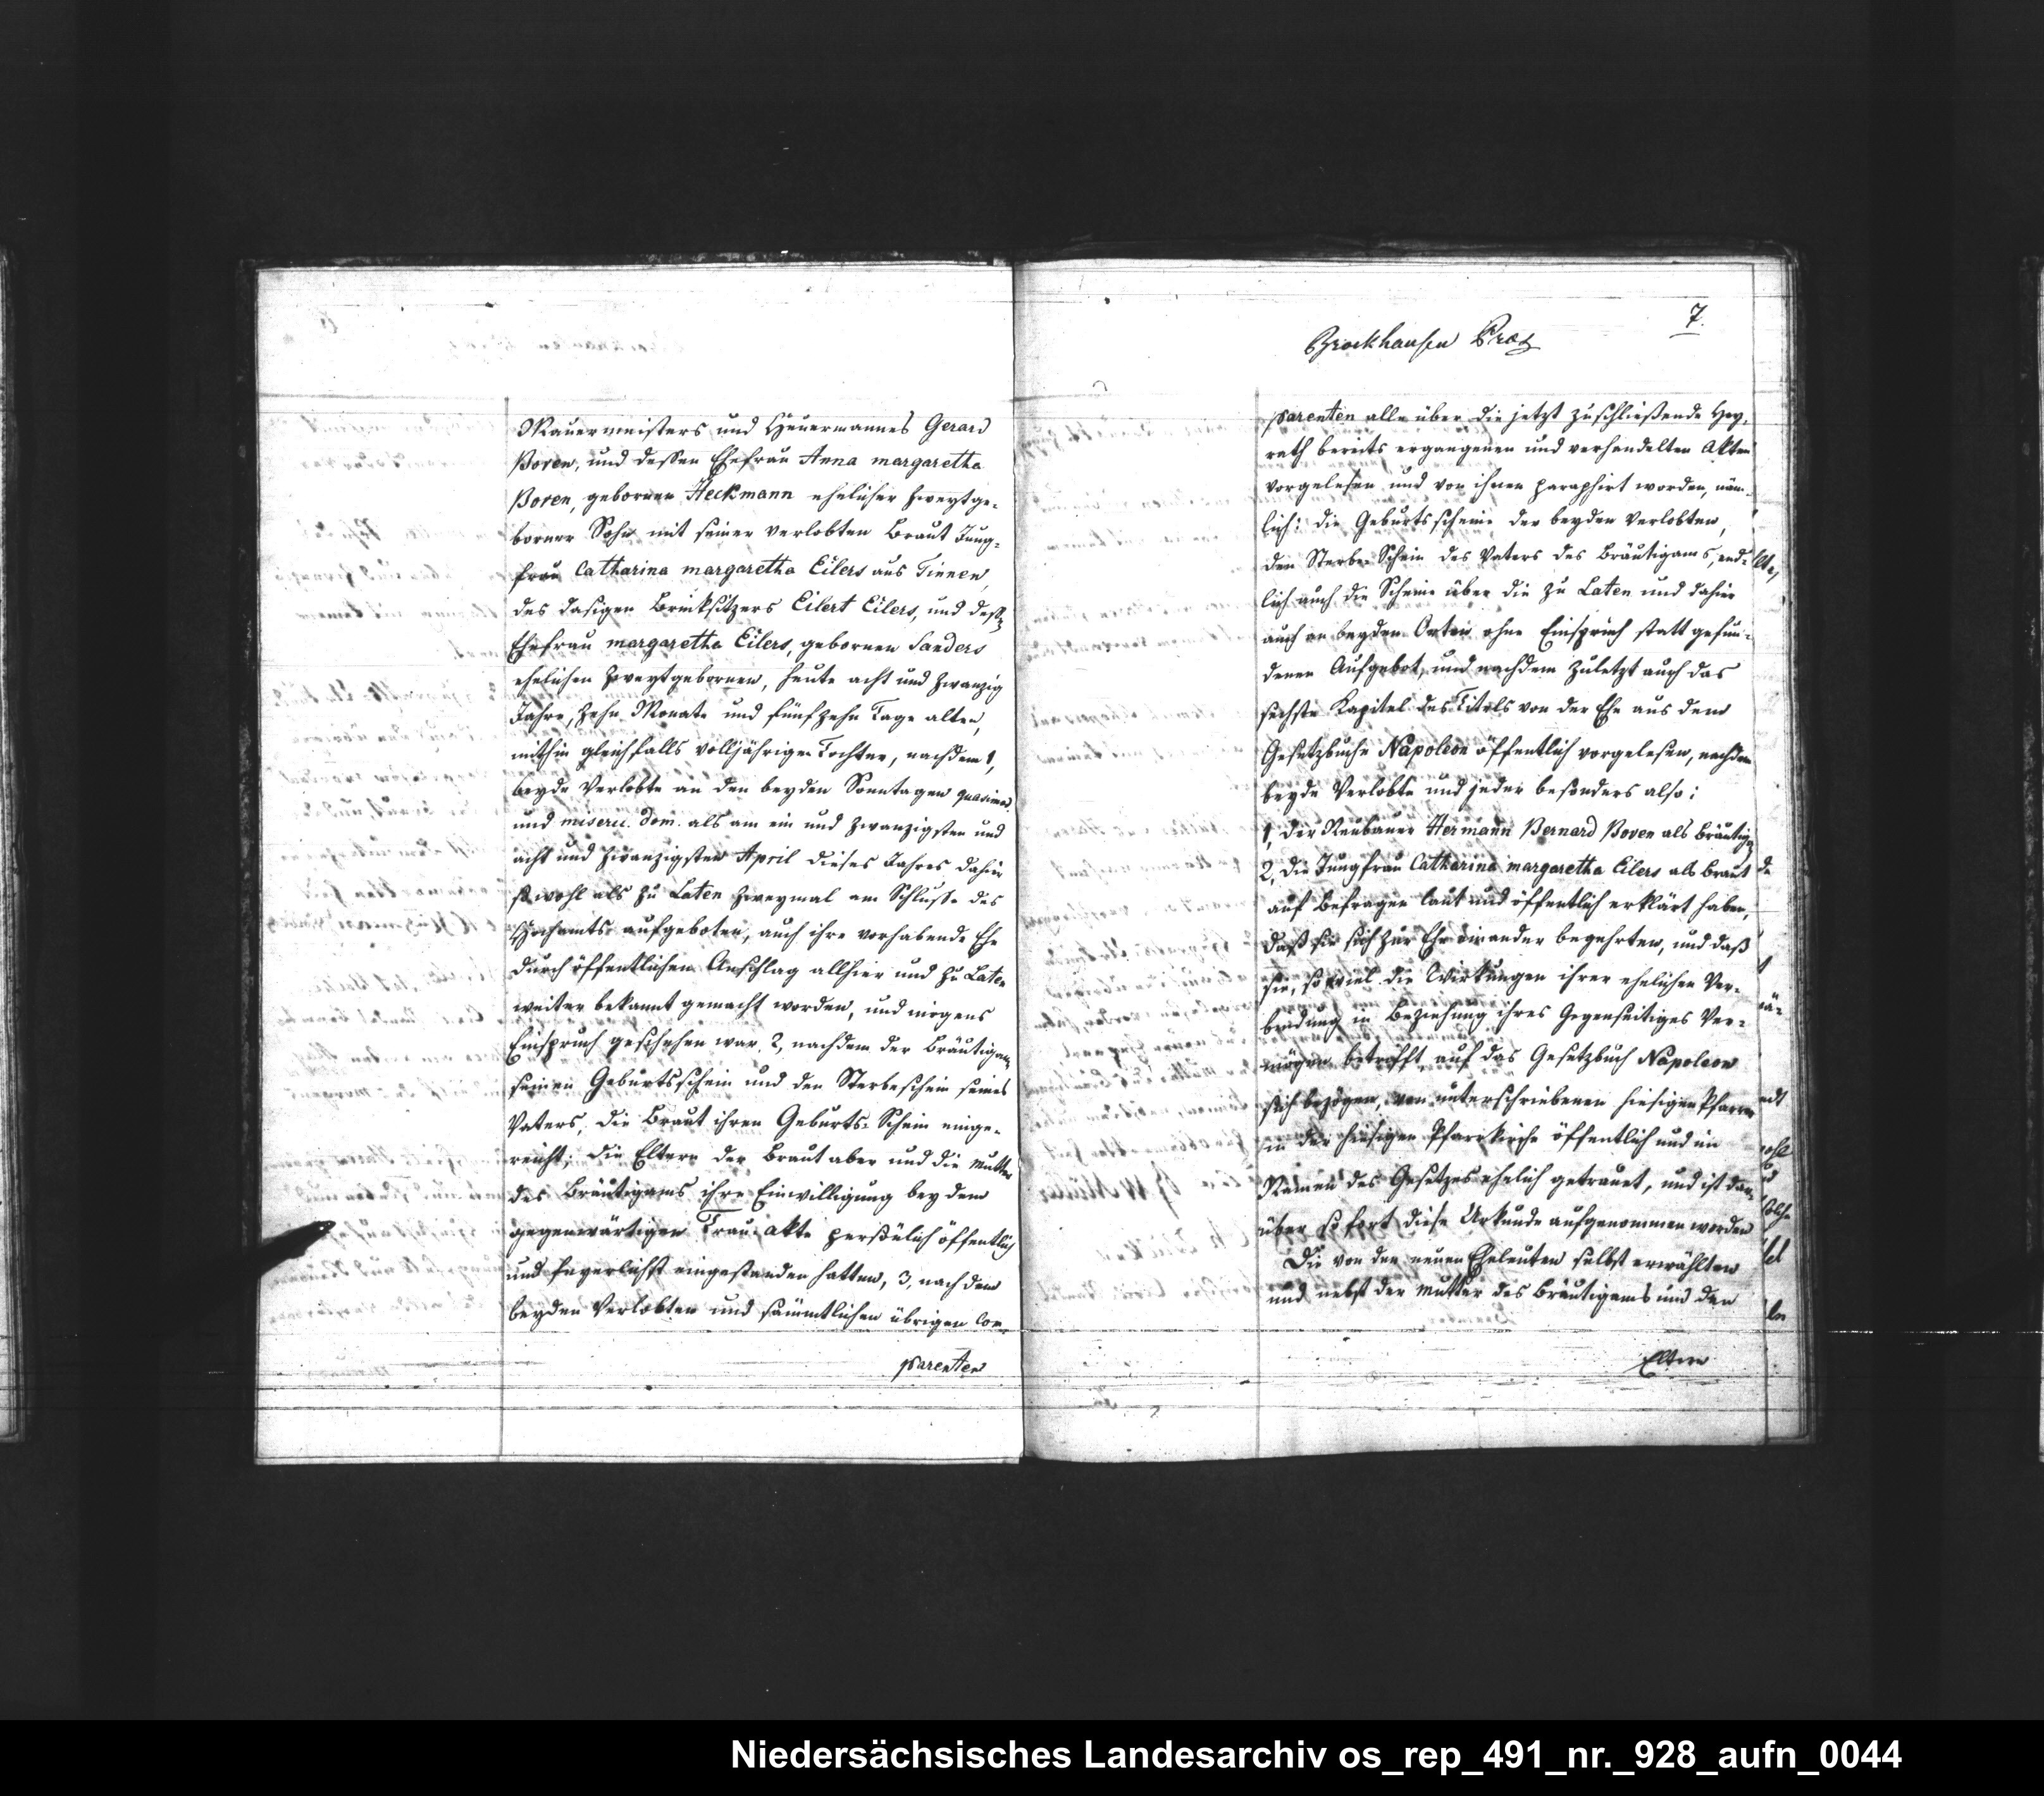 Mauermeisters und Heuermannes Gerard
Boven, und dessen Ehefrau Anna margaretha
Boven, gebornen Heckmann ehelicher Zweytge-
borner Sohn mit seiner verlobten Braut Jung-
frau Catharina margaretha Eilers aus Tinnen,
des dasigen Brinksitzers Eilert Eilers, und dessen
Ehefrau margaretha Eilers, gebornen Sanders
ehelichen Zweytgebornen, heute acht und zwanzig
Jahre, zehn Monate und fünfzehn Tage alten,
mithin gleichfalls volljährigen Tochter, nachdem 1,
beyde Verlobte an den beyden Sonntagen quasimod.
und miseric. Dom. als am ein und zwanzigsten und
acht und zwanzigsten April dieses Jahres dahier
so wohl als zu Laten zweymal am Schlusse des
Hochamts aufgeboten, auch ihre vorhabende Ehe
durch öffentlichen Anschlag allhier und zu Laten
weiter bekannt gemacht worden, und nirgens
Einspruch geschehen war. 2, nachdem der Bräutigam
seinen Geburtsschein und den Sterbeschein seines
Vaters, die Braut ihren Geburts-Schein einge-
reicht; die Eltern der Braut aber und die Mutter
des Bräutigams ihre Einwilligung bey dem
gegenwärtigen Trau-akte persönlich öffentlich
und feyerlichst eingestanden hatten, 3, nachdem
beyden Verlobten und sämmtlichen übrigen Com-
parenten
7.
Brockhausen
parenten alle über die jetzt zuschließende Hey-
rath bereits ergangenen und verhandelten Akten
vorgelesen und von ihnen paraphirt worden, näm-
lich: die Geburtsscheine der beyden Verlobten,
den Sterbe-Schein des Vaters des Bräutigams, end-
lich auch die Scheine über die zu Laten und dahier
auch an beyden Orten ohne Einspruch statt gefun-
denen Aufgebot, und nachdem zuletzt auch das
sechste Kapitel des Titels von der Ehe aus dem
Gesetzbuche Napoleon öffentlich vorgelesen, nachdem
beyde Verlobte und jeder besonders also:
1, der Neubauer Hermann Bernard Boven als Bräutig.
2, die Jungfrau Catharina margaretha Eilers als Braut
auf Befragen laut und öffentlich erklärt haben,
daß sie sich zur Ehe einander begehrten, und daß
sie, so viel die Wirkungen ihrer ehelichen Ver-
bindung in Beziehung ihres Gegenseitiges Ver-
mögen betrifft, auf das Gesetzbuch Napoleon
sich bezögen, von unterschriebenen hiesigen Pfarrer
in der hiesigen Pfarrkirche öffentlich und im
Namen des Gesetzes ehelich getrauet, und ist dar-
über sofort diese Urkunde aufgenommen worden
Die von den neuen Eheleuten selbst erwählten
und nebst der Mutter des Bräutigams und den
Eltern
Niedersächsisches Landesarchiv os_rep_491_nr._928_aufn_0044